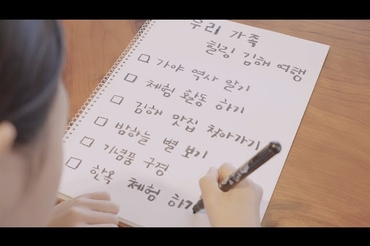 우리 가족
힐링 김해 여행
가야 역사 알기
체험 활동 하기
김해 맛집 찾아가기
밤하늘 별 보기
기념품 구경
한옥 체험 하기